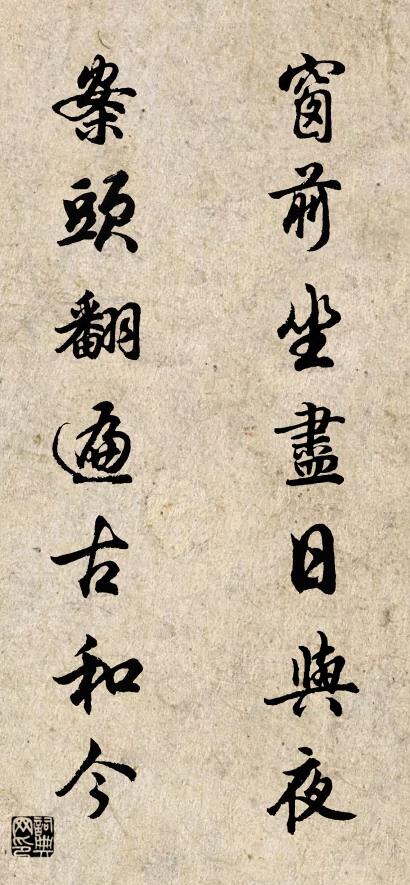 窗前坐盡日與夜
案頭翻遍古和今
詞典网印